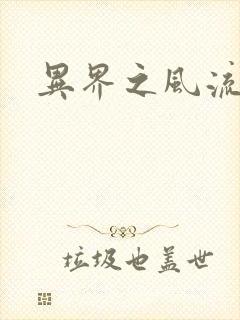 異界之風流
垃圾也盖世